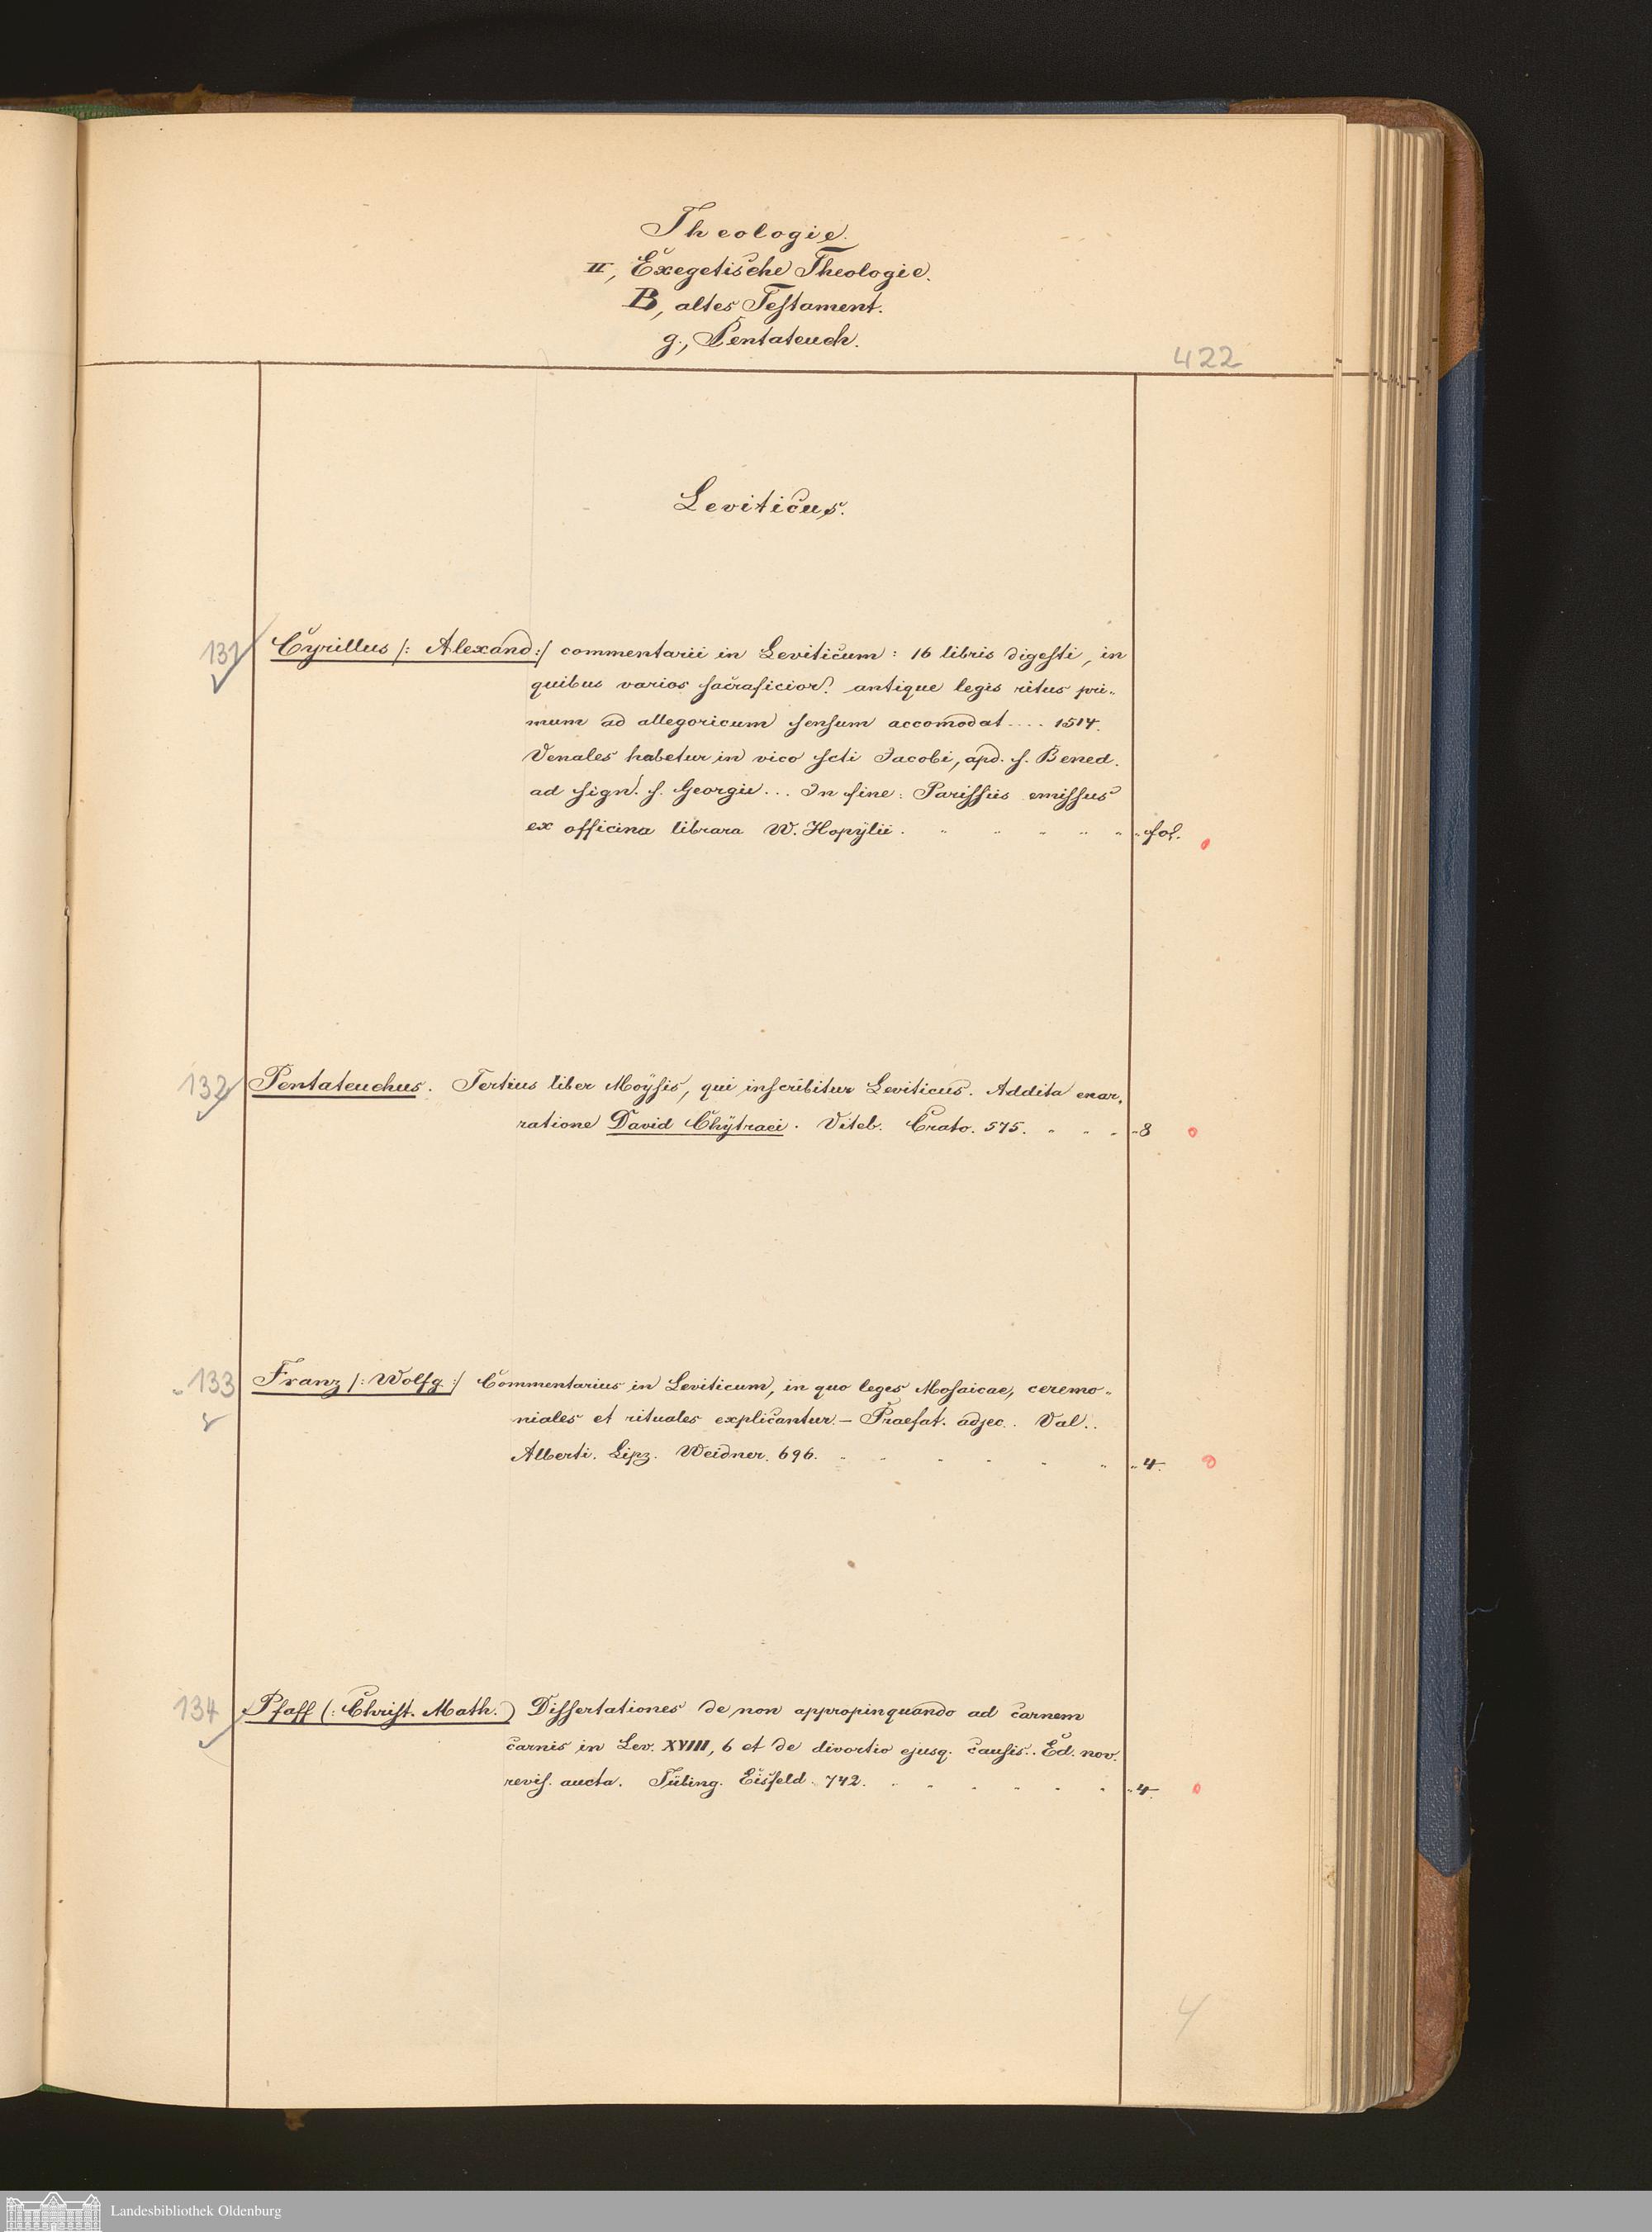 Theologie.
II, Exegetische Theologie.
B, altes Testament.
g., Pentateuch.
422
Leviticus.
131 Cyrillus /: Alexand :/ commentarii in Leviticum : 16 libris digesti, in
quibus varios sacraficior. antique legis ritus pri-
mum ad allegoricum sensum accomodat .... 1514.
Venales habetur in vico scti Jacobi, apd. s. Bened.
ad sign. s. Georgii ... In fine : Parissiis emissus
ex officina librara W. Hopÿlii . fol.
132 Pentateuchus. Tertius liber Moÿsis, qui inscribitur Leviticus. Addita enar-
ratione David Chÿtraei. Viteb. Crato. 575. 8
133 Franz /: Wolfg :/ Commentarius in Leviticum, in quo leges Mosaicae, ceremo-
niales et rituales explicantur. – Praefat. adjec.. Val..
Alberti. Lipz. Weidner. 696. 4.
134 Pfaff (: Christ. Math. ) Dissertationes de non appropinquando ad carnem
carnis in Lev. XVIII, 6 et de divortio ejusq. causis.. Ed. nov.
revis. aucta. Tübing. Eisfeld. 742. 4.
4
Landesbibliothek Oldenburg